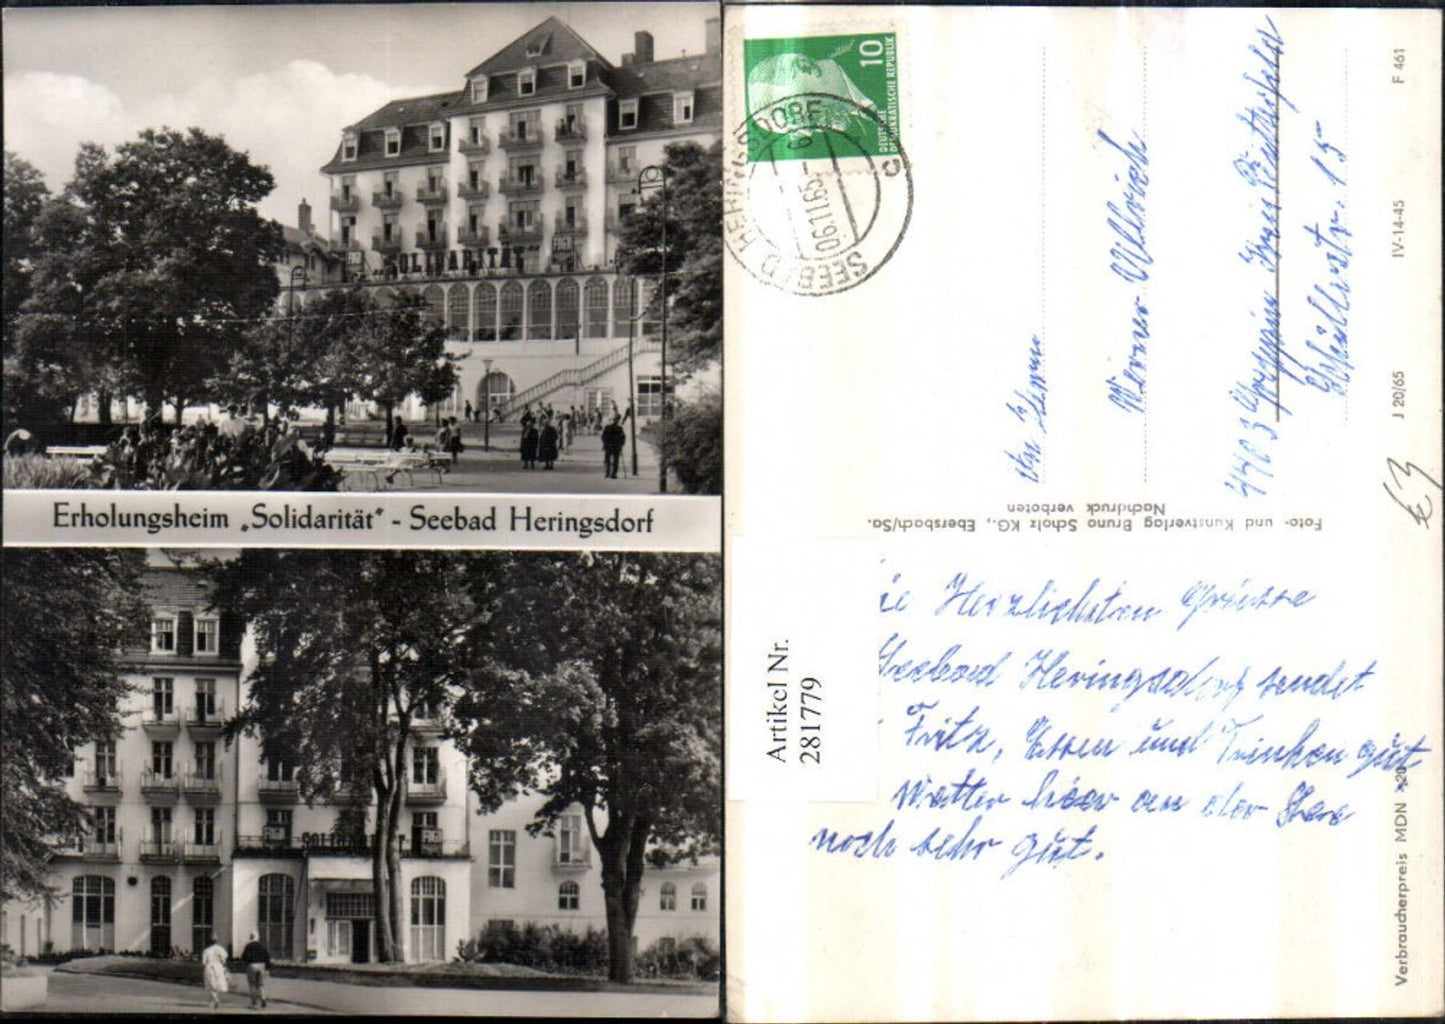 SOLIDARITÄT
FDGB
Erholungsheim „Solidarität" - Seebad Heringsdorf
SOLIDARITÄT
10
DEUTSCHE
DEMOKRATISCHE REPUBLIK
SEEBAD HERINGSDORF
06.11.65
c
Werner Ullrich
15
F 461
IV-14-45
J 20/65
k3
Foto- und Kunstverlag Bruno Scholz KG., Ebersbach/Sa.
Nachdruck verboten
Verbraucherpreis MDN
Artikel Nr.
281779
Herzlichsten Grüsse
Seebad Heringsdorf sendet
Fritz, Essen und Trinken gut
Wetter hier an der See
noch sehr gut.